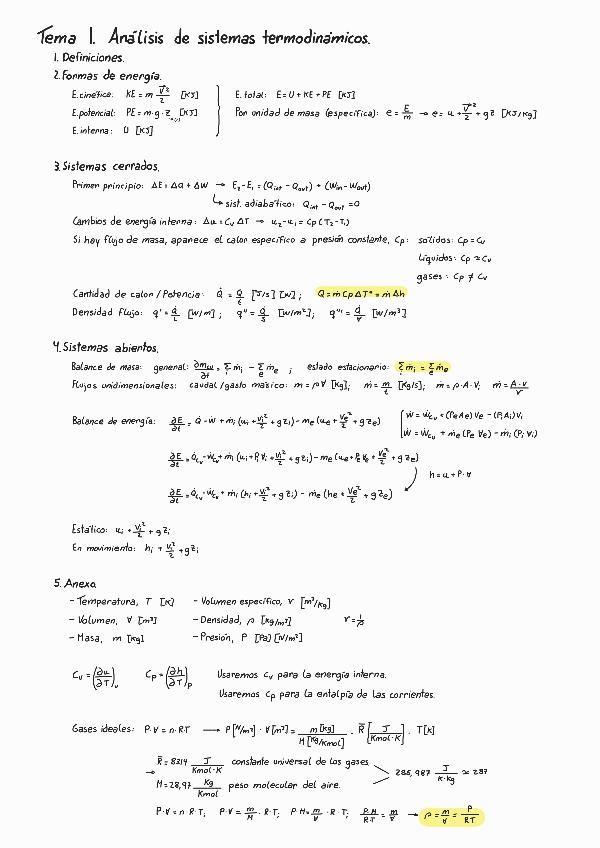 Tema 1. Análisis de sistemas termodinámicos.
1. Definiciones.
2. Formas de energía.
E.cinética: KE = m V²/2 [KJ]
E.potencial: PE = m·g·z [KJ]
E.interna: U [KJ]
E.total: E = U + KE + PE [KJ]
Por unidad de masa (específica): e = E/m → e = u + V²/2 + gz [KJ/Kg]
3. Sistemas cerrados.
Primer principio: ΔE = ΔQ + ΔW → E₂ - E₁ = (Qint - Qout) + (Win - Wout)
↳ sist. adiabático: Qint - Qout = 0
Cambios de energía interna: Δu = Cv ΔT → u₂ - u₁ = Cp (T₂ - T₁)
Si hay flujo de masa, aparece el calor específico a presión constante, Cp: sólidos: Cp = Cv
líquidos: Cp ≈ Cv
gases: Cp ≠ Cv
Cantidad de calor / Potencia: Q̇ = Q/t [J/s] [W]; Q = ṁ Cp ΔT = ṁ Δh
Densidad flujo: q' = Q̇/L [W/m]; q'' = Q̇/S [W/m²]; q''' = Q̇/V [W/m³]
4. Sistemas abiertos.
Balance de masa: general: ∂mw/∂t = Σi ṁi - Σe ṁe ; estado estacionario: Σi ṁi = Σe ṁe
Flujos unidimensionales: caudal/gasto másico: m = ρ∀ [Kg]; ṁ = m/t [Kg/s]; ṁ = ρ·A·V; ṁ = A·V/v
Balance de energía: ∂E/∂t = Q̇ - Ẇ + ṁi (ui + Vi²/2 + gzi) - ṁe (ue + Ve²/2 + gze)
Ẇ = Ẇcv + (PeAe)Ve - (PiAi)Vi
Ẇ = Ẇcv + ṁe (Pe ∀e) - ṁi (Pi ∀i)
∂E/∂t = Q̇cv - Ẇcv + ṁi (ui + Pi∀i + Vi²/2 + gzi) - ṁe (ue + Pe∀e + Ve²/2 + gze)
h = u + P·∀
∂E/∂t = Q̇cv - Ẇcv + ṁi (hi + Vi²/2 + gzi) - ṁe (he + Ve²/2 + gze)
Estático: ui + Vi²/2 + gzi
En movimiento: hi + Vi²/2 + gzi
5. Anexo.
- Temperatura, T [K] - Volumen específico, v [m³/Kg]
- Volumen, ∀ [m³] - Densidad, ρ [Kg/m³] v = 1/ρ
- Masa, m [Kg] - Presión, P [Pa] [N/m²]
Cv = (∂u/∂T)v Cp = (∂h/∂T)p Usaremos Cv para la energía interna.
Usaremos Cp para la entalpía de las corrientes.
Gases ideales: P·∀ = n·RT → P [N/m²] · ∀ [m³] = m [Kg] / M [Kg/Kmol] · R̄ [J/Kmol·K] · T [K]
R̄ = 8314 J/Kmol·K constante universal de los gases
→ 286,987 J/K·Kg ≈ 287
M = 28,97 Kg/Kmol peso molecular del aire.
P·∀ = n·R·T; P·∀ = m/M · R·T; P·M = m/∀ · R·T; P·M/R·T = m/∀ → ρ = m/∀ = P/RT